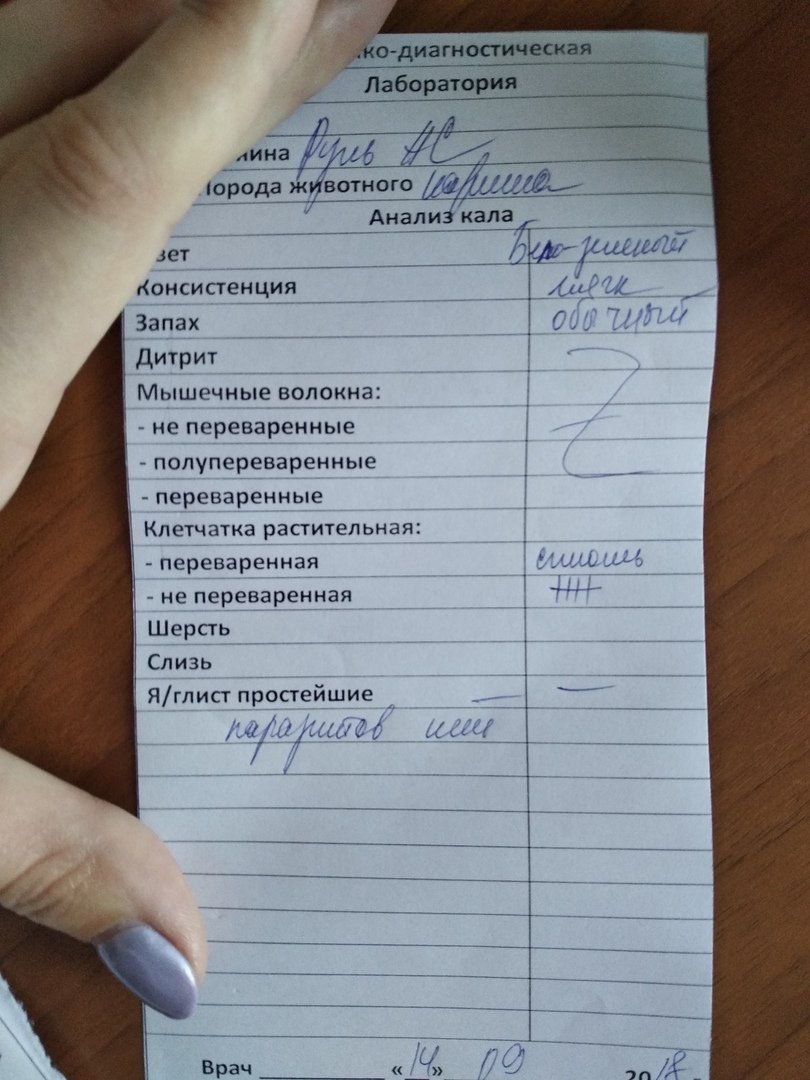 ко-диагностическая
Лаборатория
нина Руль АС
орода животного
Анализ кала
вет Бело-зеленый
Консистенция мягк
Запах обычный
Дитрит
Мышечные волокна:
- не переваренные
- полупереваренные
- переваренные
Клетчатка растительная:
- переваренная сплошь
- не переваренная
Шерсть
Слизь
Я/глист простейшие — —
паразитов нет
Врач ____________ «14» 09 2018